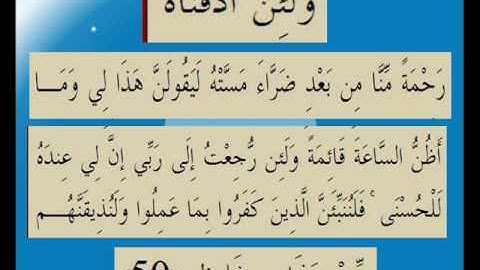 وَلَئِنْ أَذَقْنَاهُ
رَحْمَةً مِّنَّا مِن بَعْدِ ضَرَّاءَ مَسَّتْهُ لَيَقُولَنَّ هَذَا لِي وَمَا
أَظُنُّ السَّاعَةَ قَائِمَةً وَلَئِن رُّجِعْتُ إِلَى رَبِّي إِنَّ لِي عِندَهُ
لَلْحُسْنَى ۚ فَلَنُنَبِّئَنَّ الَّذِينَ كَفَرُوا بِمَا عَمِلُوا وَلَنُذِيقَنَّهُم
50